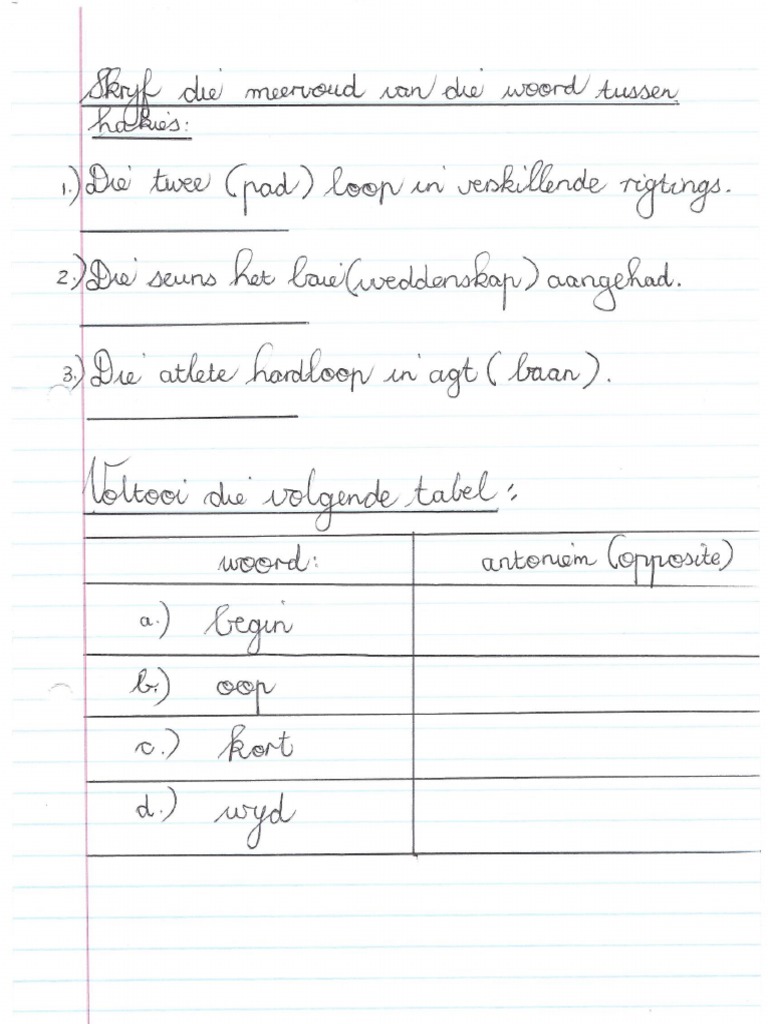 Skryf die meervoud van die woord tussen
hakies:
1.) Die twee (pad) loop in verskillende rigtings.
2.) Die seuns het baie (weddenskap) aangehad.
3.) Die atlete hardloop in agt (baan).
Voltooi die volgende tabel:
woord: antoniem (opposite)
a.) begin
b.) oop
c.) kort
d.) wyd